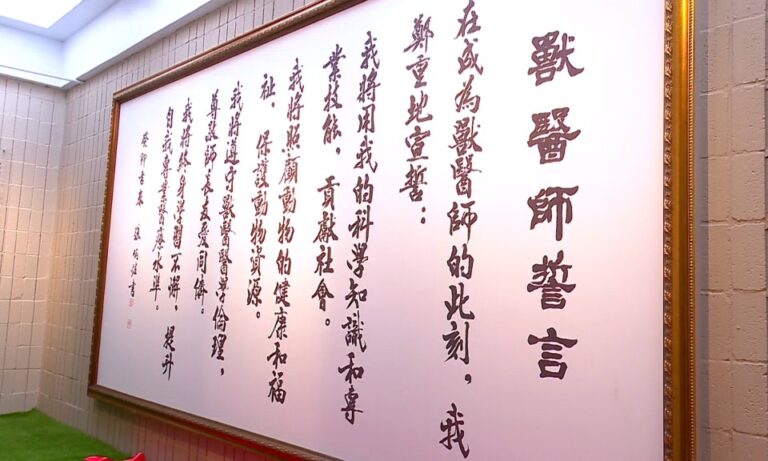 獸醫師誓言
在成為獸醫師的此刻，我
鄭重地宣誓：
我將用我的科學知識和專
業技能，貢獻社會。
我將照顧動物的健康和福
祉，保護動物資源。
我將遵守獸醫醫學倫理，
尊敬師長友愛同儕。
我將終身學習不懈，提升
自我專業醫療水準。
癸卯